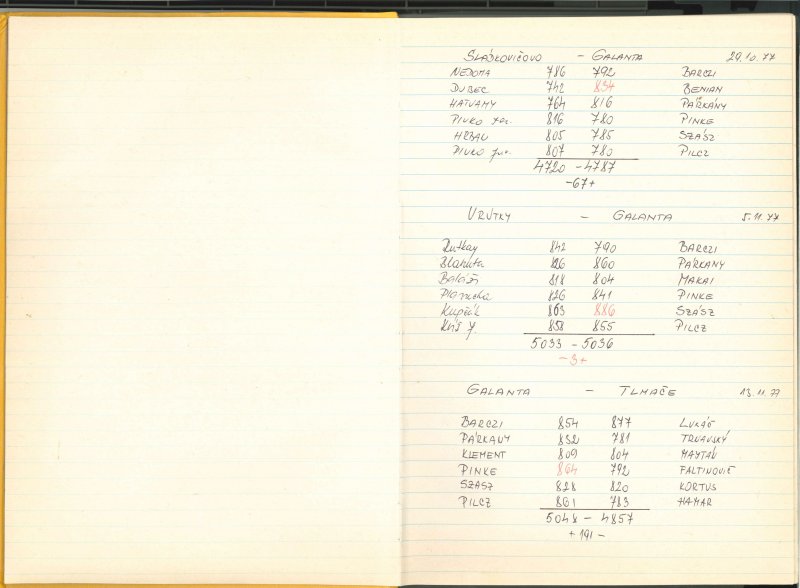 SLÁDKOVIČOVO - GALANTA 29.10.77
NEDOMA 786 792 BARCZI
DUBEC 742 834 BENIAN
HATVAMY 764 816 PÁRKÁNY
PIVKO 816 780 PINKE
HRBAU 805 785 SZÁSZ
PIVKO jun. 807 780 PILCZ
4720 - 4787
-67+
VRÚTKY - GALANTA 5.11.77
Rutkay 842 790 BARCZI
826 860 PÁRKANY
Baláži 818 804 MAKAI
826 841 PINKE
Kupčík 863 886 SZÁSZ
858 855 PILCZ
5033 - 5036
-3+
GALANTA - TLMAČE 13.11.77
BARCZI 854 877 LUKÁČ
PÁRKANY 832 781 TRNAVSKÝ
KLEMENT 809 804 MAYTÁN
PINKE 864 792
SZASZ 828 820 KORTUS
PILCZ 861 783 HAMAR
5048 - 4857
+191-